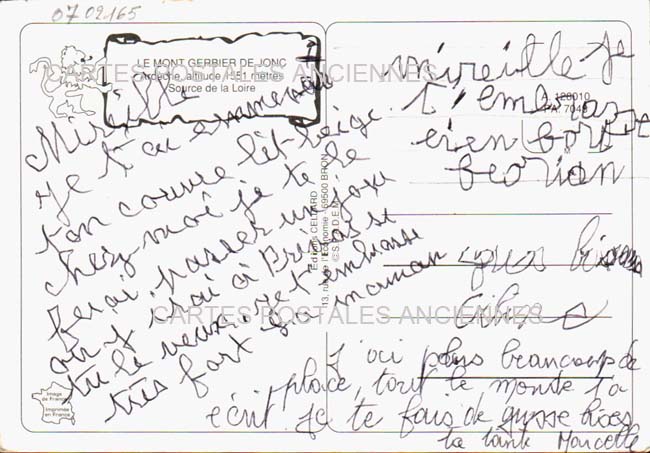 07 02165
LE MONT GERBIER DE JONC
Ardèche, altitude 1551 mètres
Source de la Loire
CARTES POSTALES ANCIENNES
Mireille
je t'ai emmené
ton couvre lit beige
chez moi je te le
ferai passer un jour
ou j irai à
tu le veux. je t'embrasse
très fort ta maman
Mireille Je
t'embrasse
bien fort
gros bisous
j'ai plus beaucoup de
place, tout le monde t'a
écrit. je te fais de grosse bises
ta tante Marcelle
Editions CELLARD
13, rue de l'Economie - 69500 BRON
A. 128010
CARTES POSTALES ANCIENNES
Image
de France
Imprimée
en France